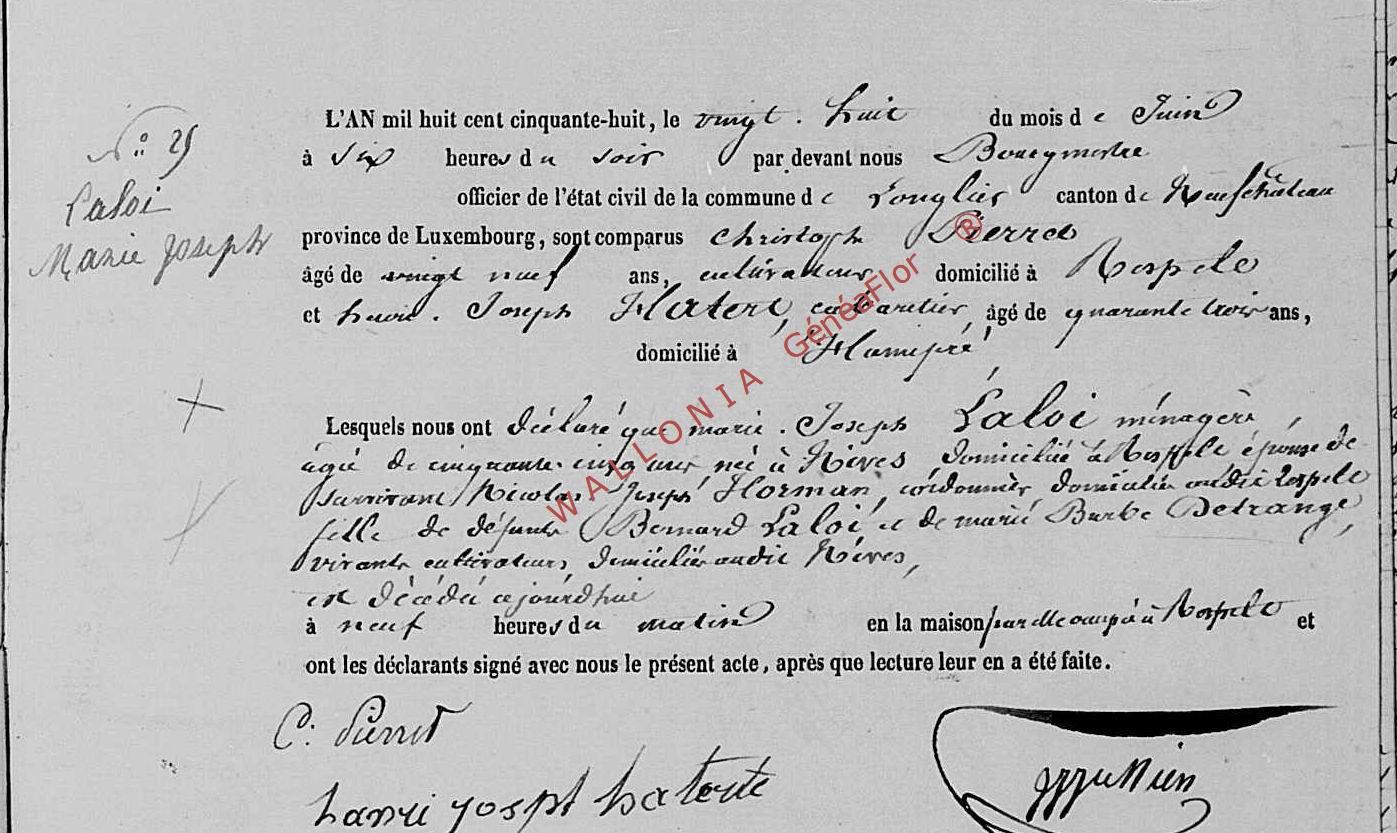 N° 25
Laloi
Marie Joseph
L'AN mil huit cent cinquante-huit, le vingt . huit du mois de Juin
à six heures du soir par devant nous Bourgmestre
officier de l'état civil de la commune de Longlier canton de Neufchâteau
province de Luxembourg, sont comparus Christoph Pierret
âgé de vingt neuf ans, cultivateur, domicilié à Respelt
et henri . Joseph Hatert, cabaretier, âgé de quarante trois ans,
domicilié à Hamipré,
Lesquels nous ont déclaré que marie . Joseph Laloi ménagère,
agée de cinquante . cinq ans née à Nives, domiciliée à Respelt épouse de
survivant Nicolas Joseph Horman, cordonnier domicilié audit respelt
fille de défunts Bernard Laloi, et de marie Barbe Detrange,
vivants cultivateurs, domiciliés audit Nives,
est décédée ajourd'hui
à neuf heures du matin en la maison par elle occupée à Respelt et
ont les déclarants signé avec nous le présent acte, après que lecture leur en a été faite.
C. Pierret
hanri yospt haterte
WALLONIA GénéaFlor ®